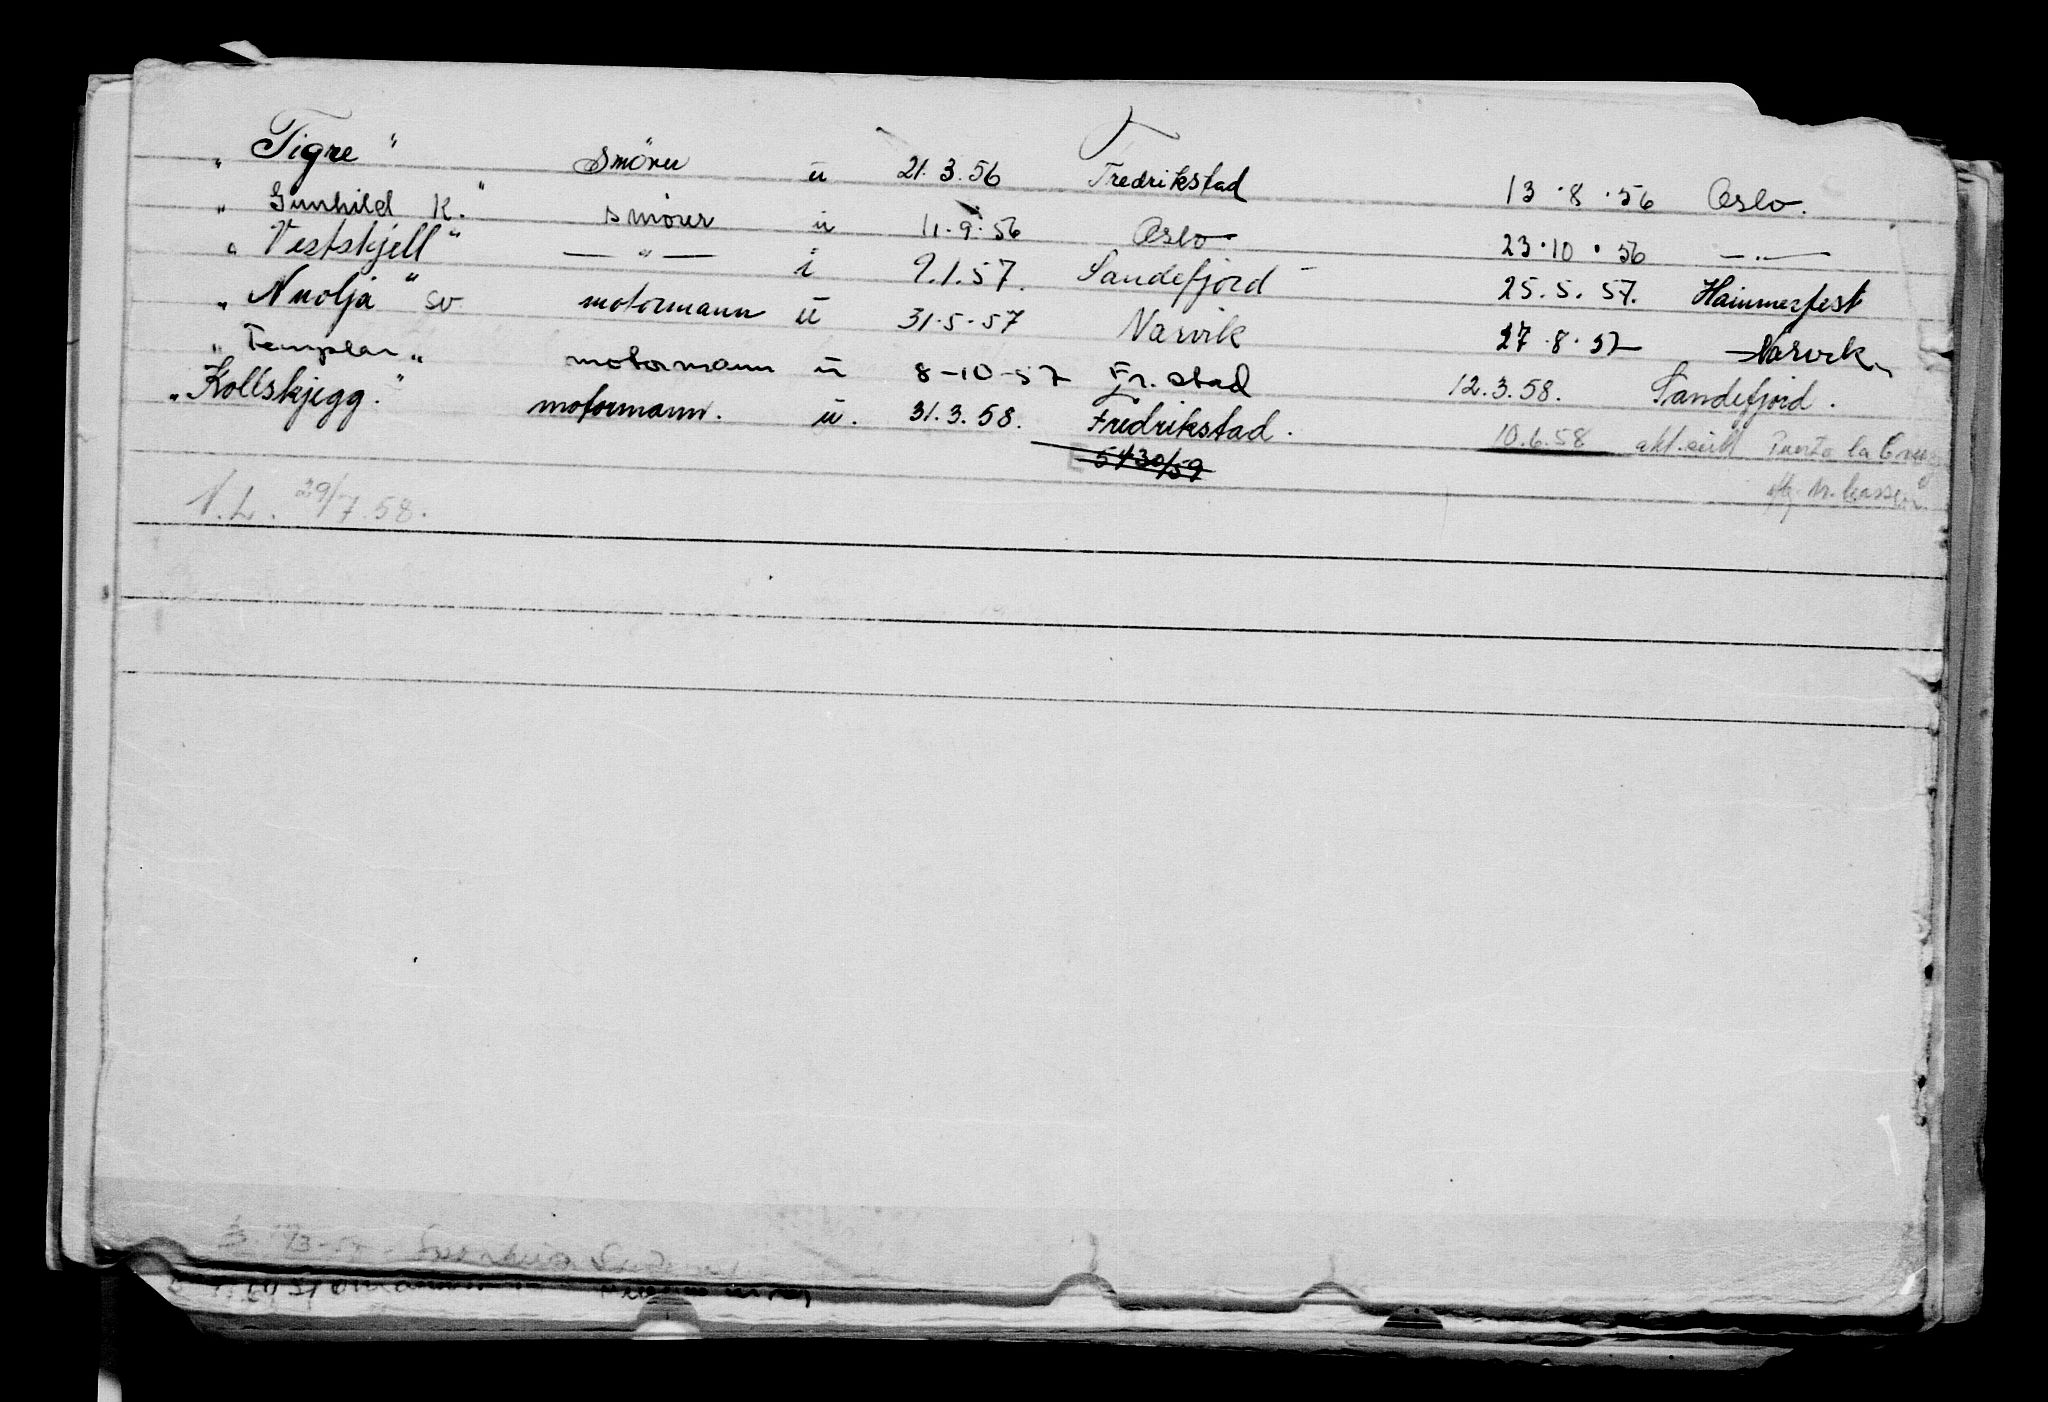 „ Tigre " smörer u 21.3.56 Fredrikstad 13.8.56 Oslo.
„ Gunhild K." smörer u 11.9.56 Oslo 23.10.56 — „ —
„ Vestskjell " — " — i 9.1.57. Sandefjord - 25.5.57. Hammerfest
„ Nuolja " sv motormann u 31.5.57 Narvik 27.8.57 Narvik
„ Templar „ motormann u 8-10-57 Fr.stad 12.3.58. Sandefjord.
„ Kollskjegg." motormann. u. 31.3.58. Fredrikstad. 10.6.58 Puerto la Cruz
5430/59
N.L. 29/7.58.